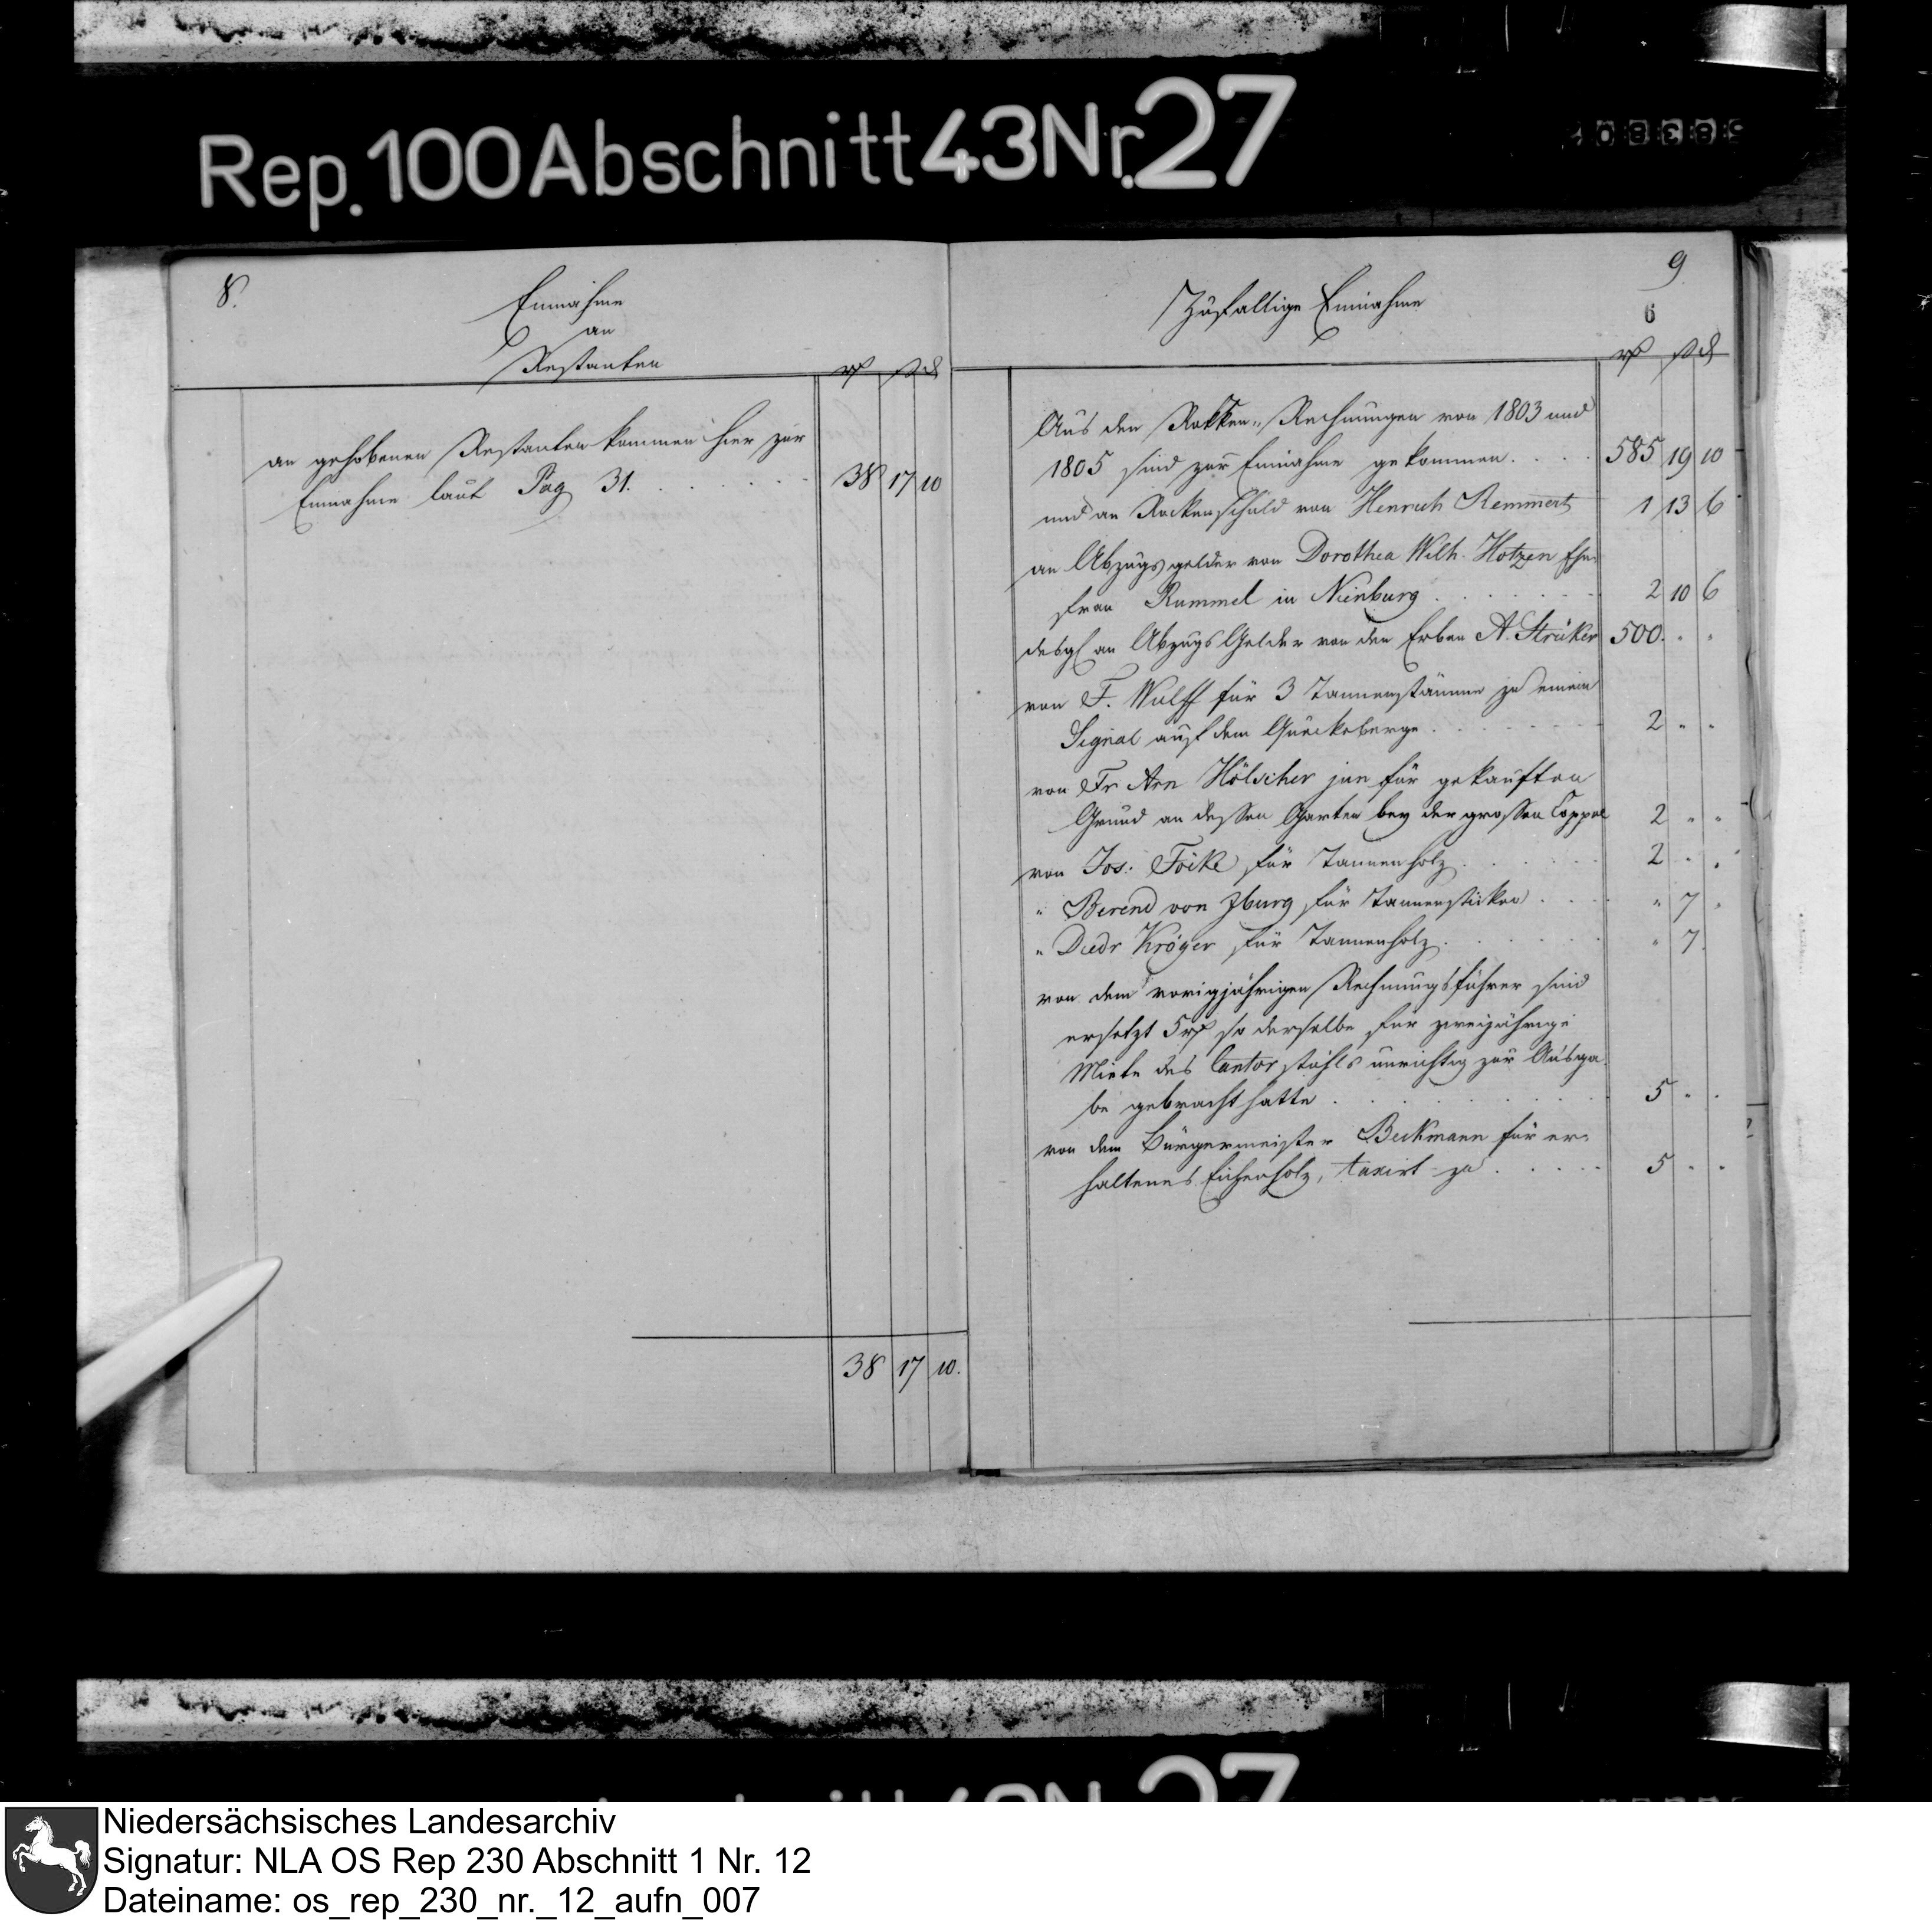 Rep. 100 Abschnitt 43 Nr. 27
8.
Einnahme
an
Restanten
rf ß d
an gehobenen Restanten kommen hier zur
Einnahme laut Pag 31. . . . . . . 38 17 10
38 17 10.
9
6
Zufallige Einnahme
rf ß d
Aus den Rokken-Rechnungen von 1803 und
1805 sind zur Einnahme gekommen. . . . 585 19 10
und an Rockenschuld von Henrich Remmert 1 13 6
an Abzugsgelder von Dorothea Wilh. Hotzen Ehe-
frau Rummel in Nienburg . . . . . . 2 10 6
desgl an Abzugs Gelder von den Erben A. Strüker 500. " "
von F. Wulff für 3 Tannenstämme zu einem
Signal auf dem Queckeberge . . . . . . 2 " "
von Fr Arn Hölscher jun für gekauften
Grund an dessen Garten bey der grossen Coppel 2 " "
von Jos: Föcke für Tannenholz . . . . . 2 " "
" Berend von Iburg für Tannensticken . . . " 7 "
" Diedr Kröger für Tannenholz . . . . . " 7
von dem vorigjährigen Rechnungsführer sind
ersetzt 5 rf so derselbe für zweijährige
Miete des Cantorstuhls unrichtig zur Ausga-
be gebracht hatte . . . . . . . 5 " "
von dem Bürgermeister Beckmann für er-
haltenes Eichenholz, taxirt zu . . . . . 5 " "
Niedersächsisches Landesarchiv
Signatur: NLA OS Rep 230 Abschnitt 1 Nr. 12
Dateiname: os_rep_230_nr._12_aufn_007